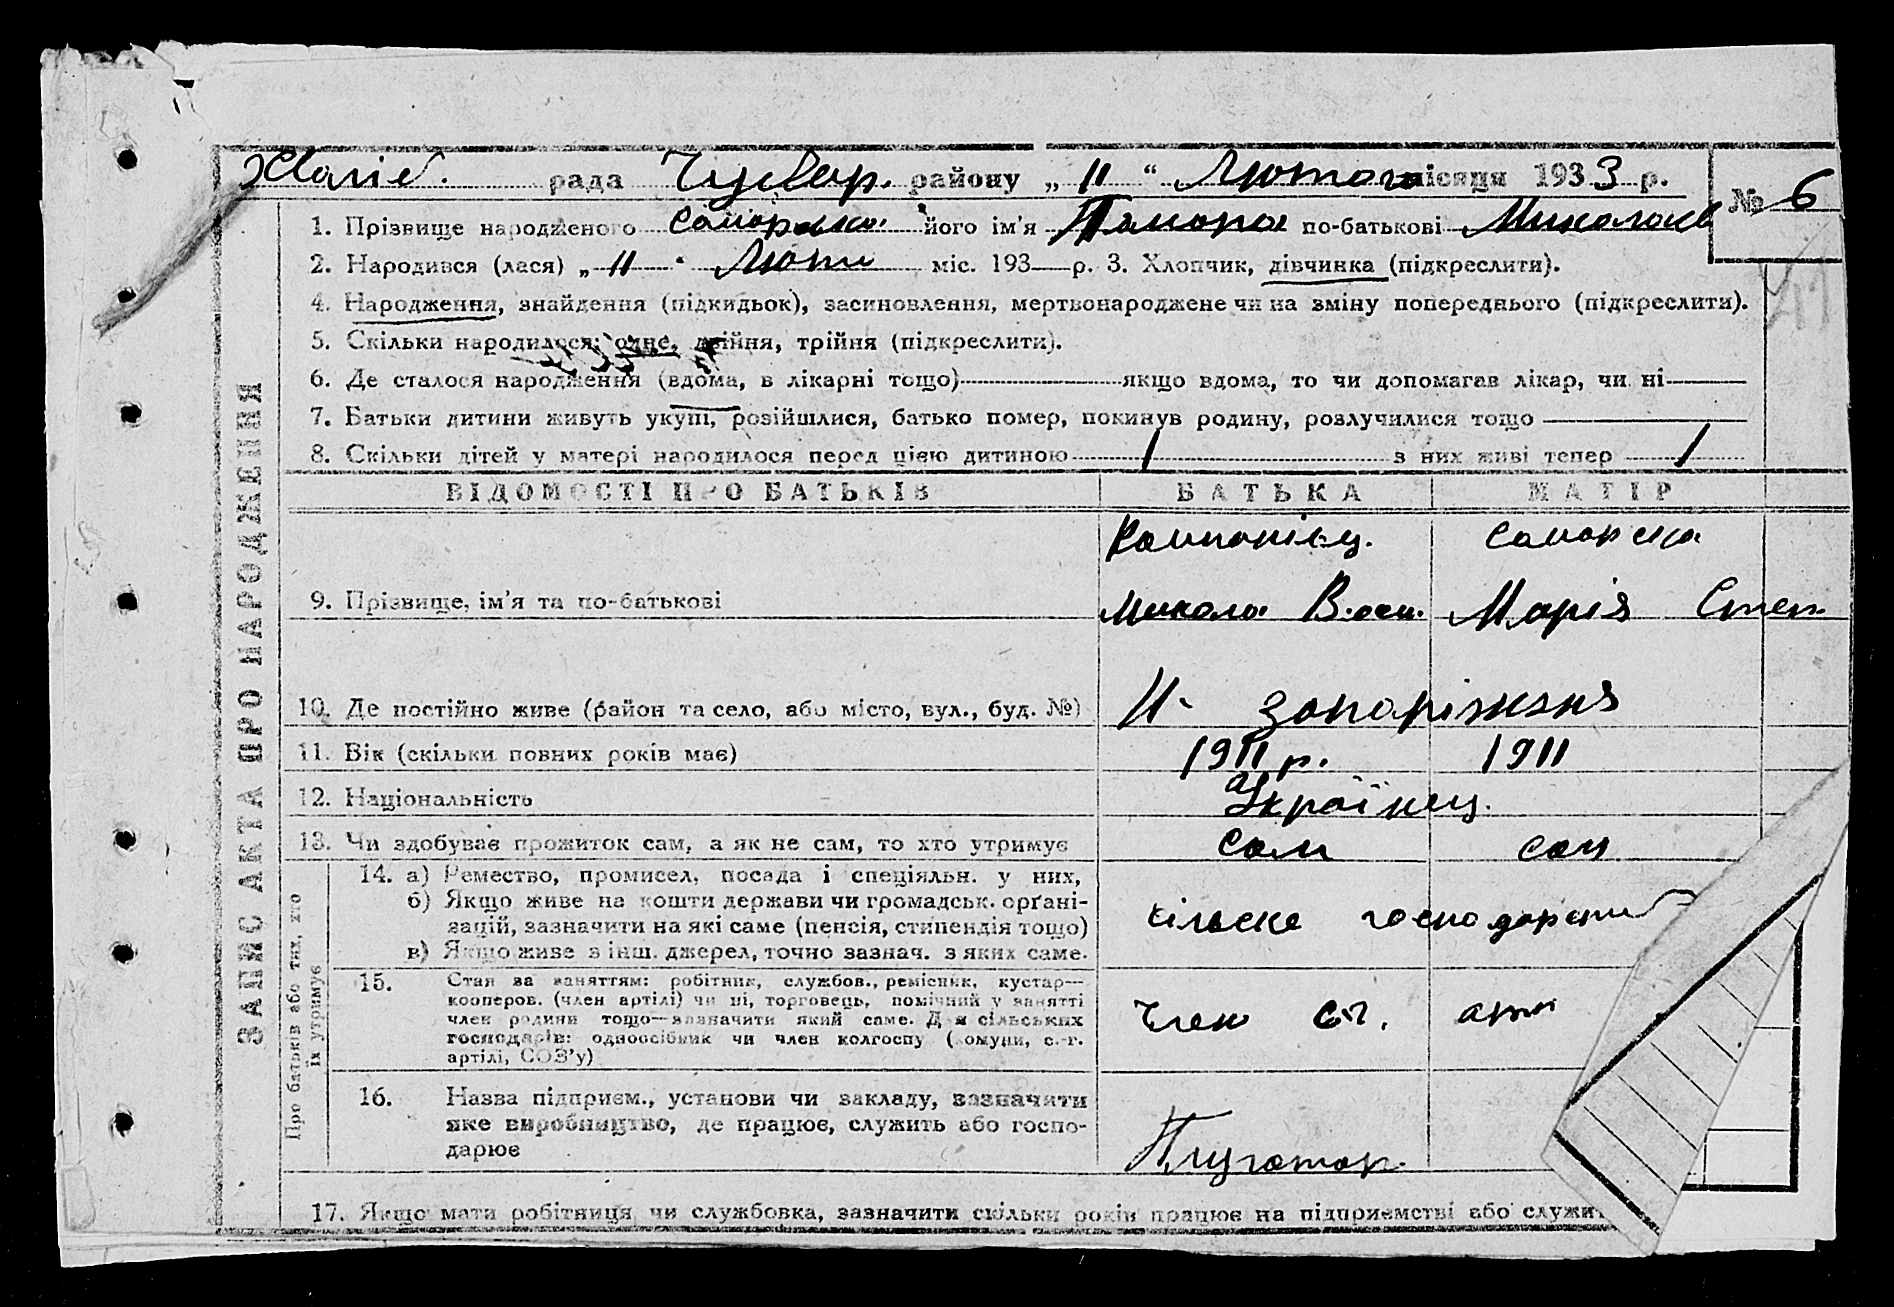 рада району „ 11 “ Лютого місяця 1933 р.
№ 6
1. Прізвище народженого його ім'я Тамара по-батькові
2. Народився (лася) „ 11 " Люти міс. 193 р. 3. Хлопчик, дівчинка (підкреслити).
4. Народження, знайдення (підкидьок), засиновлення, мертвонароджене чи на зміну попереднього (підкреслити).
5. Скільки народилося: одне, двійня, трійня (підкреслити).
6. Де сталося народження (вдома, в лікарні тощо) якщо вдома, то чи допомагав лікар, чи ні
7. Батьки дитини живуть укупі, розійшлися, батько помер, покинув родину, розлучилися тощо
8. Скільки дітей у матері народилося перед цією дитиною 1 з них живі тепер 1
ЗАПИС АКТА ПРО НАРОДЖЕННЯ
ВІДОМОСТІ ПРО БАТЬКІВ БАТЬКА МАТІР
9. Прізвище, ім'я та по-батькові Микола Марія Степ
10. Де постійно живе (район та село, або місто, вул., буд. №) Н- Запоріжжя
11. Вік (скільки повних років має) 1911 р. 1911
12. Національність Українец.
13. Чи здобуває прожиток сам, а як не сам, то хто утримує Сам сам
Про батьків або тих, хто
їх утримує
14. а) Ремество, промисел, посада і спеціяльн. у них,
б) Якщо живе на кошти держави чи громадськ. орґані-
зацій, зазначити на які саме (пенсія, стипендія тощо)
в) Якщо живе з інш. джерел, точно зазнач. з яких саме.
15. Стан за заняттям: робітник, службов., ремісник, кустар—
кооперов. (член артілі) чи ні, торговець, помічний у занятті
член родини тощо—зазначити який саме. Для сільських
господарів: одноосібник чи член колгоспу (комуни, с.-г.
артілі, СОЗ'у)
Член
16. Назва підприєм., установи чи закладу, зазначити
яке виробництво, де працює, служить або госпо-
дарює
Плугатар.
17. Якщо мати робітниця чи службовка, зазначити скільки років працює на підприємстві або служить